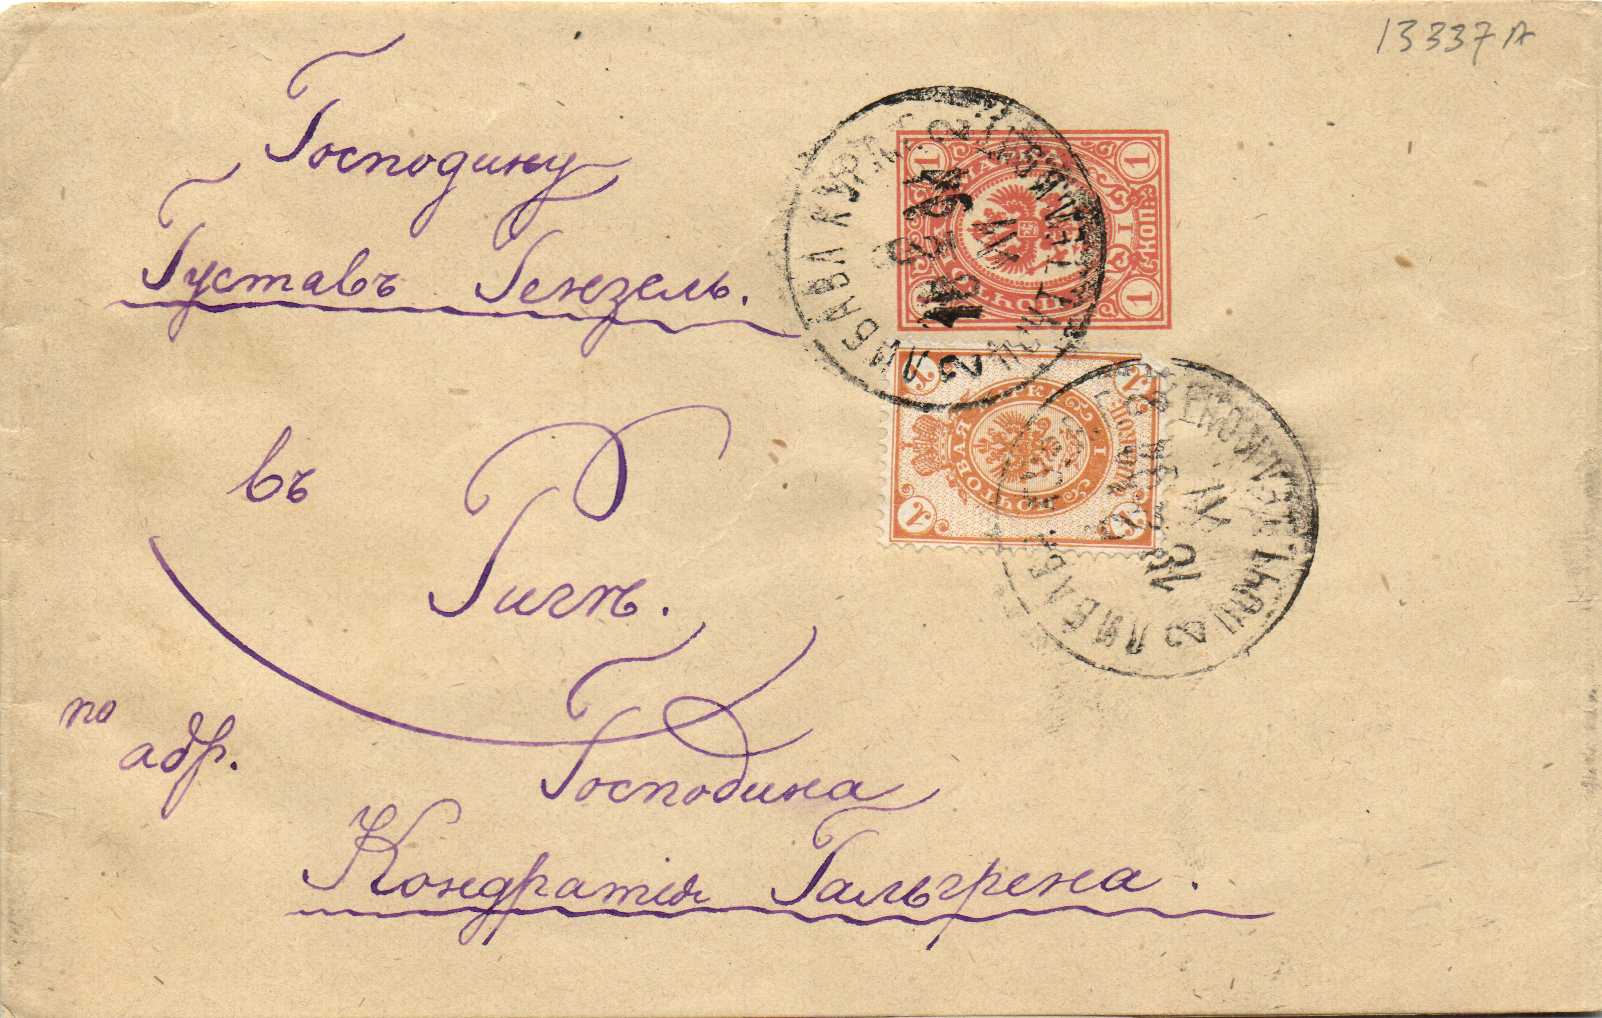 13337A
Господину
Густавъ Гензель.
въ
Ригѣ.
по
адр.
Господина
Кондратія Гальгрена.
1 1
1 КОП. 1
МАРКА
ПОЧТОВАЯ
1 КОП. 1
ЛИБАВА КУРЛ. Г.
ЛИБАВА
2
2